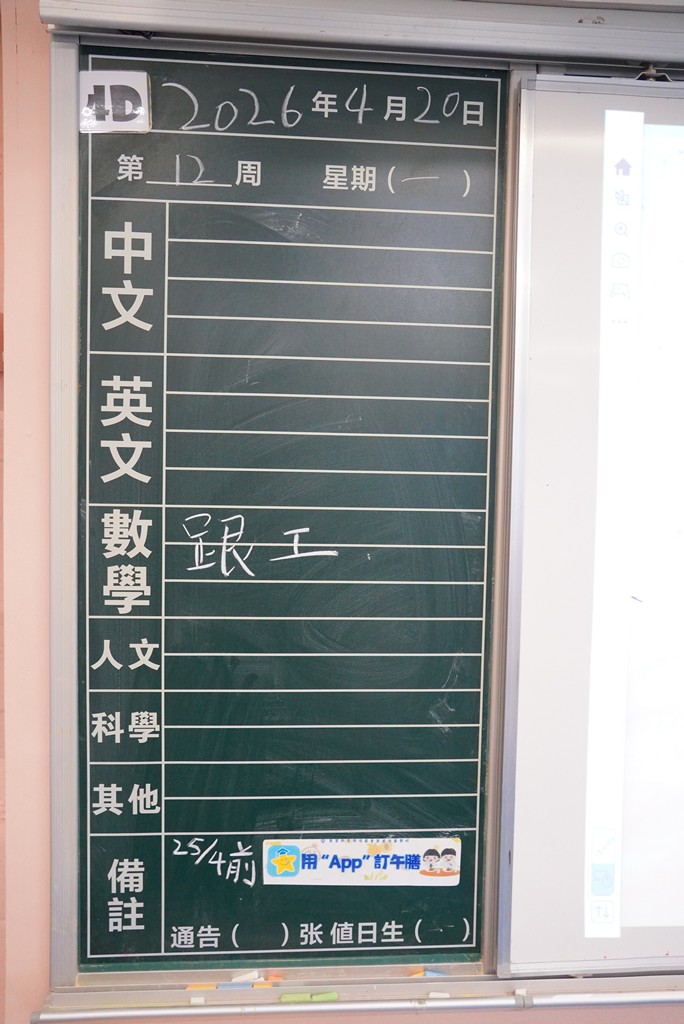 4D 2026年4月20日
第12周 星期(一)
中文
英文
數學 跟工
人文
科學
其他
備註 25/4前 用“App”訂午膳
通告( )张 值日生(一)